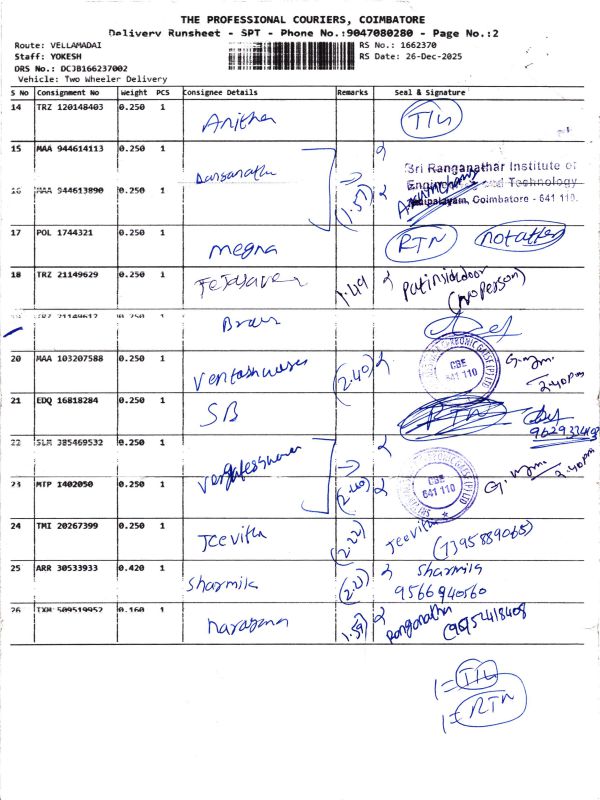 THE PROFESSIONAL COURIERS, COIMBATORE
Delivery Runsheet - SPT - Phone No.:9047080280 - Page No.:2
Route: VELLAMADAI
RS No.: 1662370
Staff: YOKESH
RS Date: 26-Dec-2025
DRS No.: DCJB166237002
Vehicle: Two Wheeler Delivery
S No Consignment No Weight PCS Consignee Details Remarks Seal & Signature
14 TRZ 120148403 0.250 1 Anitha
15 MAA 944614113 0.250 1
Sri Ranganathar Institute of
16 MAA 944613890 0.250 1 (1.57)
Engineering and Technology
Coimbatore - 641 110.
17 POL 1744321 0.250 1 megna RTN
18 TRZ 21149629 0.250 1 1.49 Put inside door
(no person)
19 TRZ 21149617 0.250 1
20 MAA 103207588 0.250 1 (2.40) CBE 641 110 2.40pm
21 EDQ 16818284 0.250 1 SB RTN
22 SLM 385469532 0.250 1
23 MTP 1402050 0.250 1 (2.40) CBE 641 110 2.40pm
24 TMI 20267399 0.250 1 Jeevitha (2.22) Jeevitha
(7395889065)
25 ARR 30533933 0.420 1 Sharmila Sharmila
9566940560
26 TXM 509519952 0.160 1 narayana 1.59 Ranganatha
1=
1= RTN